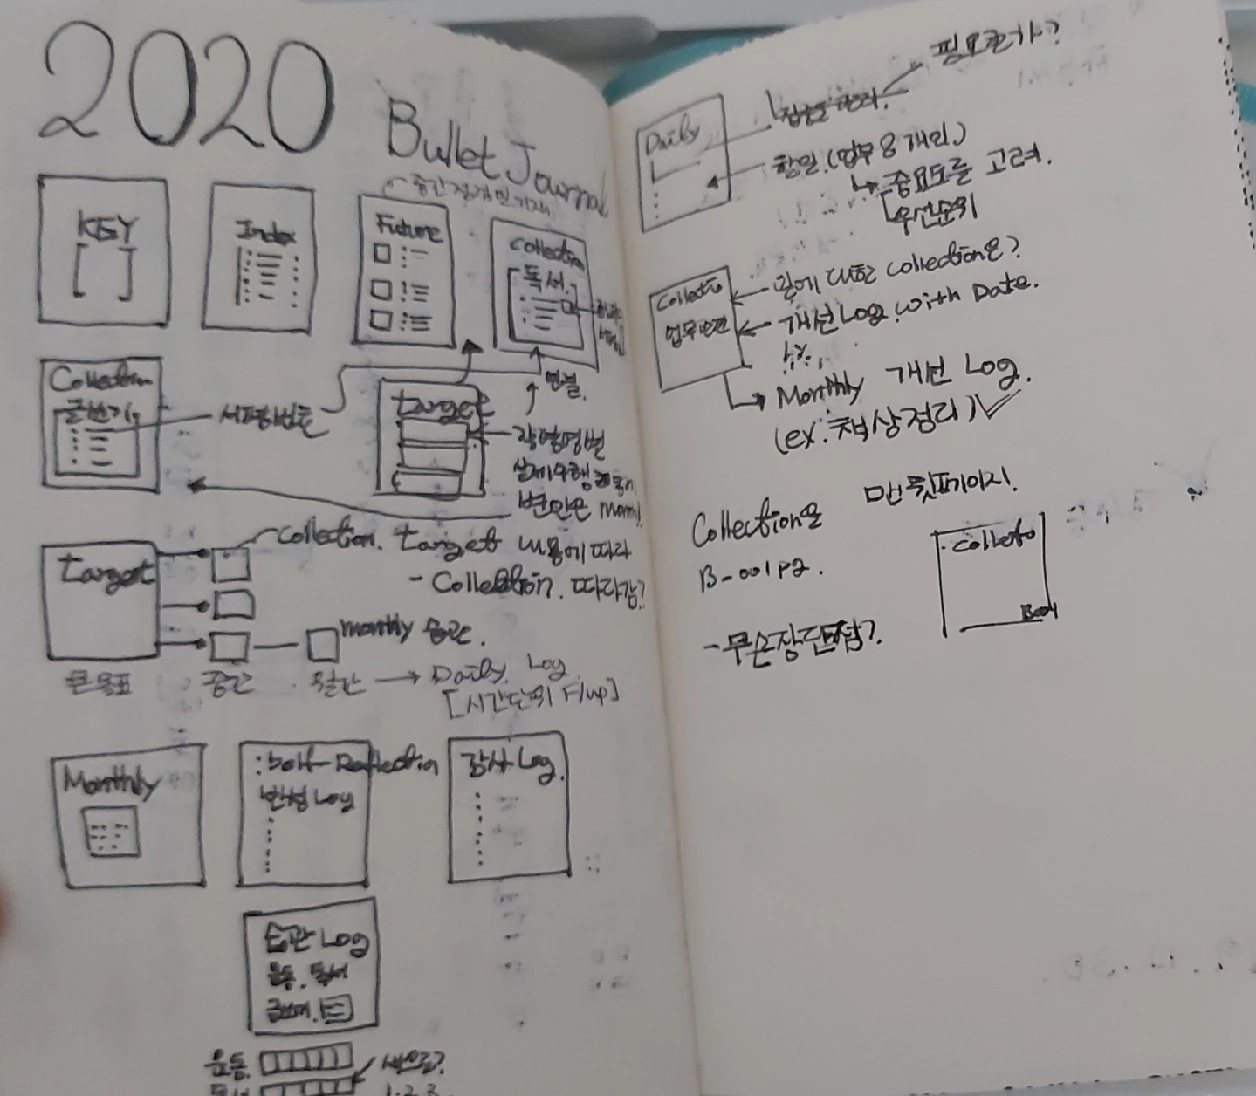 2020
Bullet Journal
KEY
Index
Future
Collection
독서
Collection
글쓰기
서평방법론
연결.
target
실제수행
변인은 Monthly
target
Collection. target 내용에 따라
- Collection. 따라감?
monthly
큰목표
중간
월간 → Daily Log
[시간단위 F/up]
Monthly
Self-Reflection
반성 Log
감사 Log.
습관 Log
운동. 독서
운동
독서
1.2.3
필요한가?
Daily
할일 (업무 & 개인)
중요도를 고려.
우선순위
Collectio
업무
일에 대한 collection은?
개선 Log. with Date.
Monthly 개선 Log.
(ex: 책상정리)
Collection은 맨 뒷페이지.
B-001P2.
Collectio
- 무슨장단점?